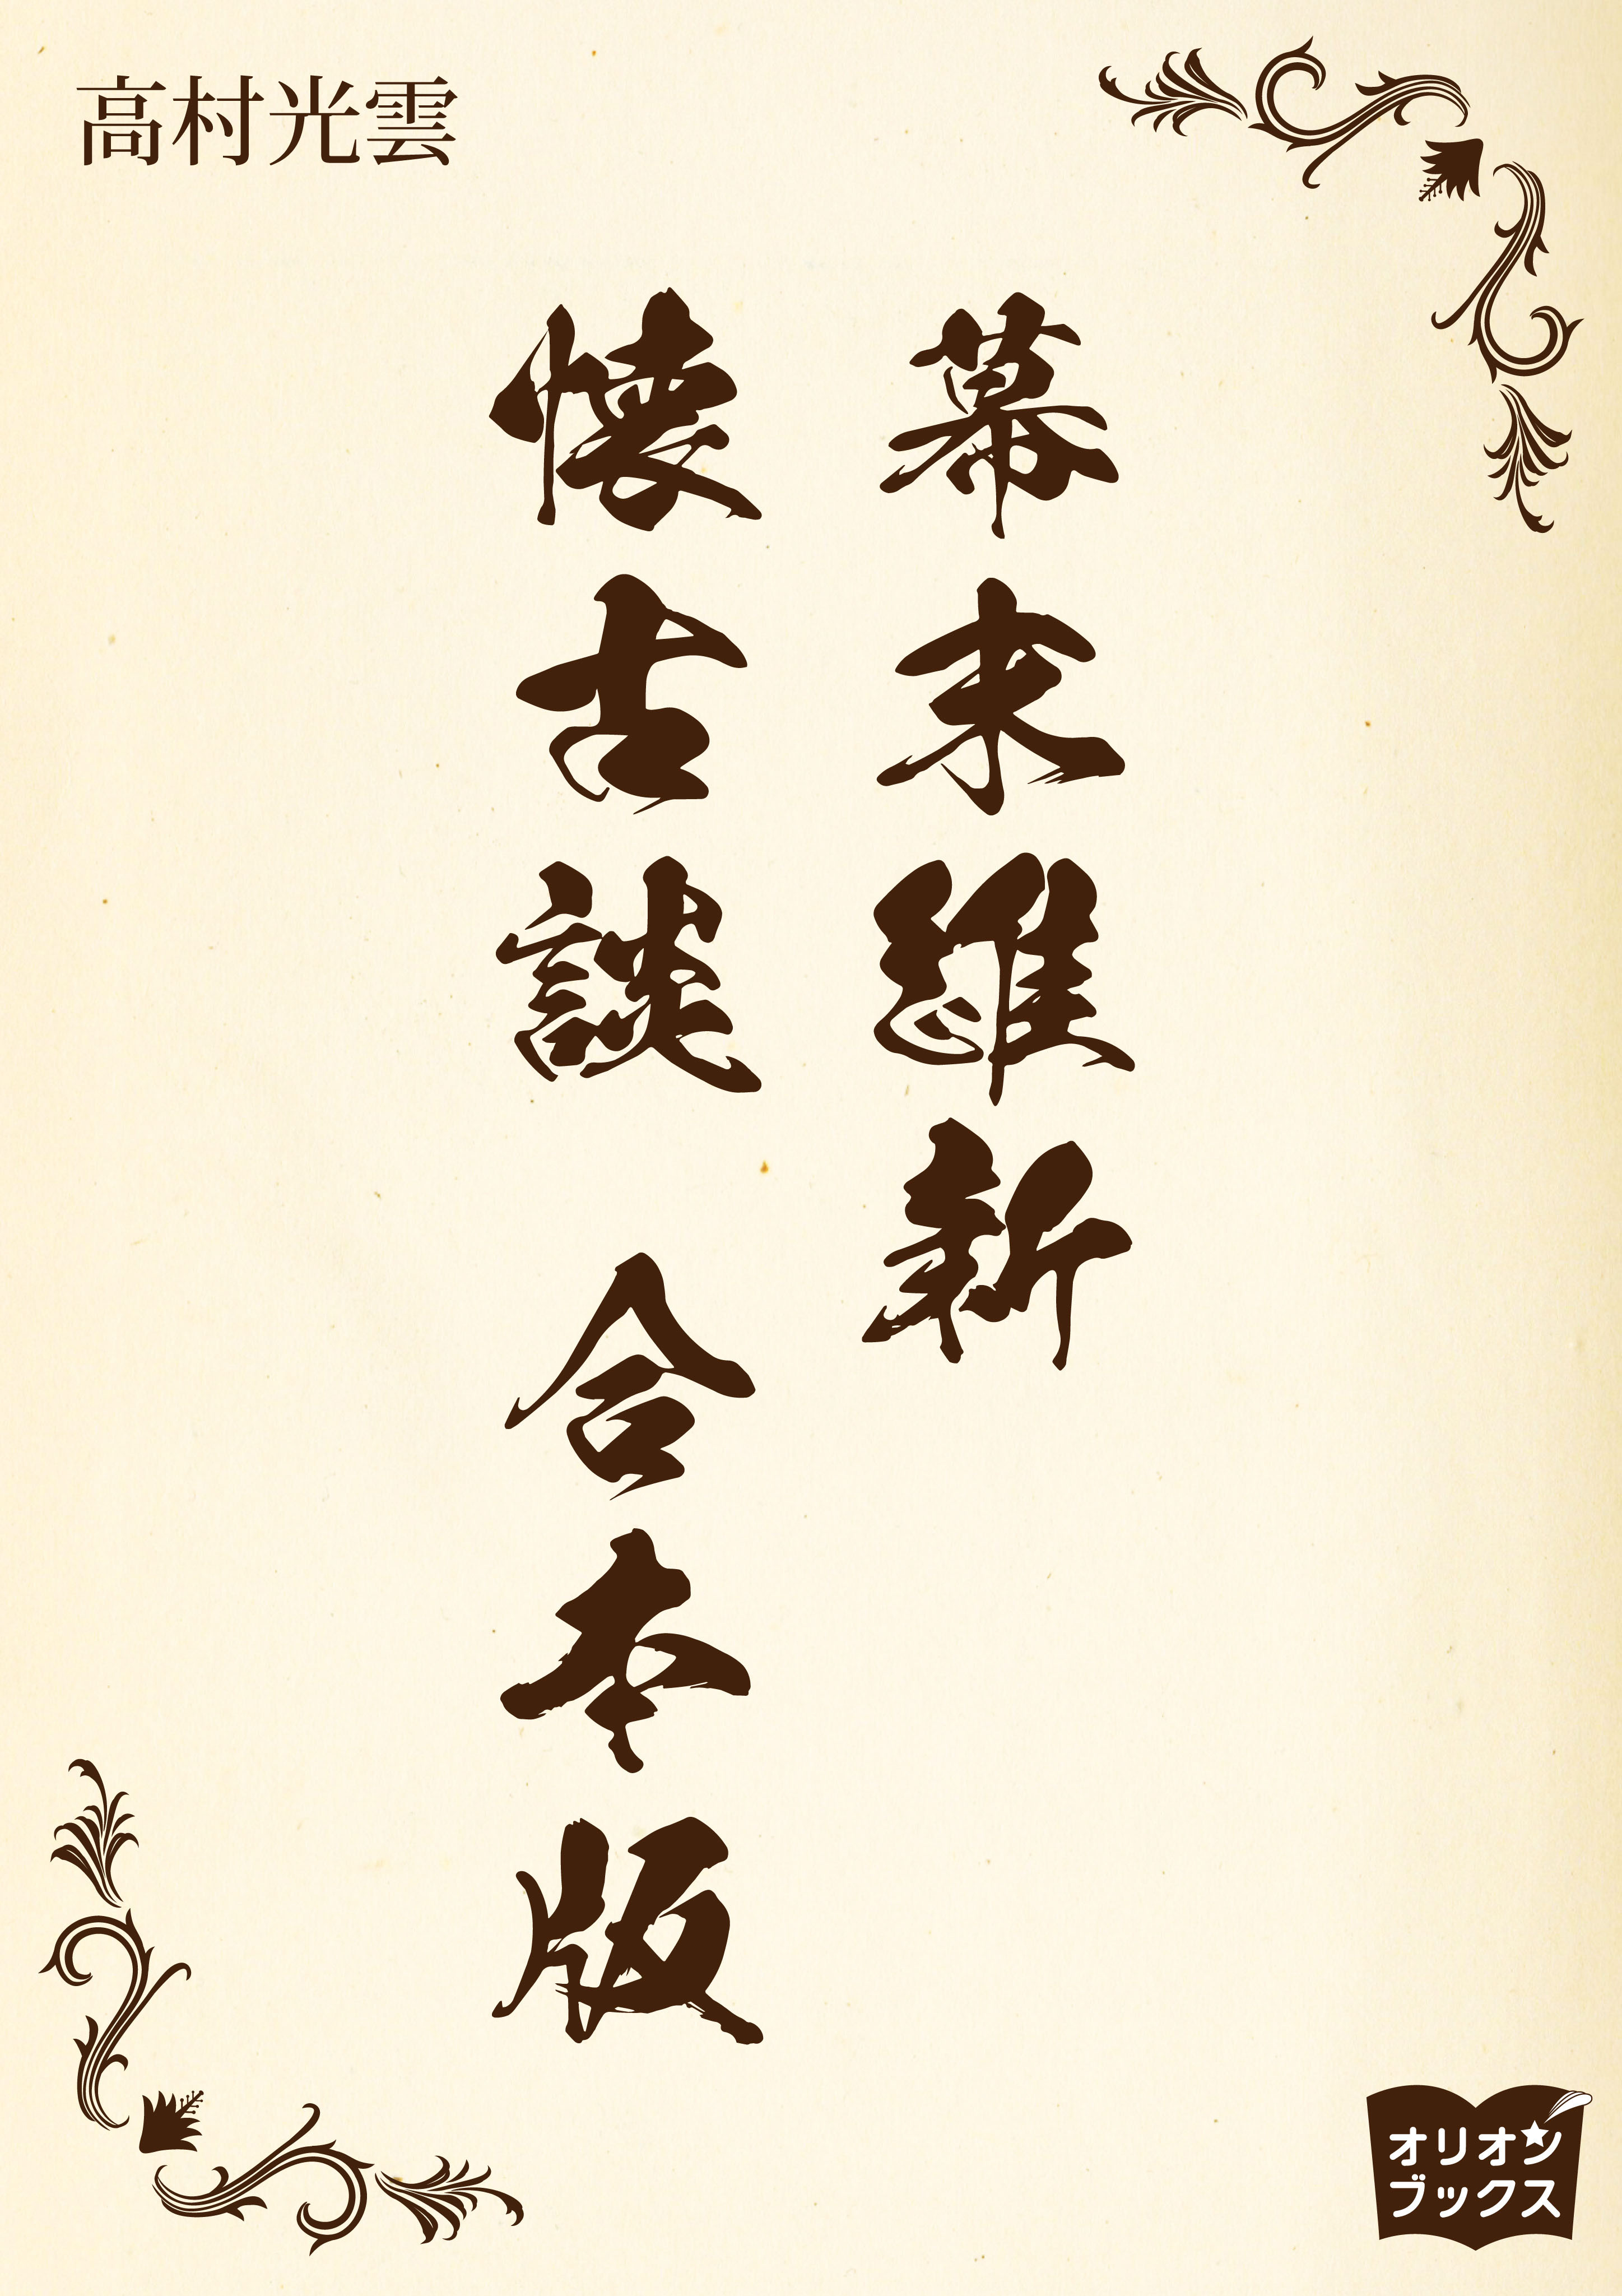 高村光雲
幕末維新
懐古談 合本版
オリオン
ブックス